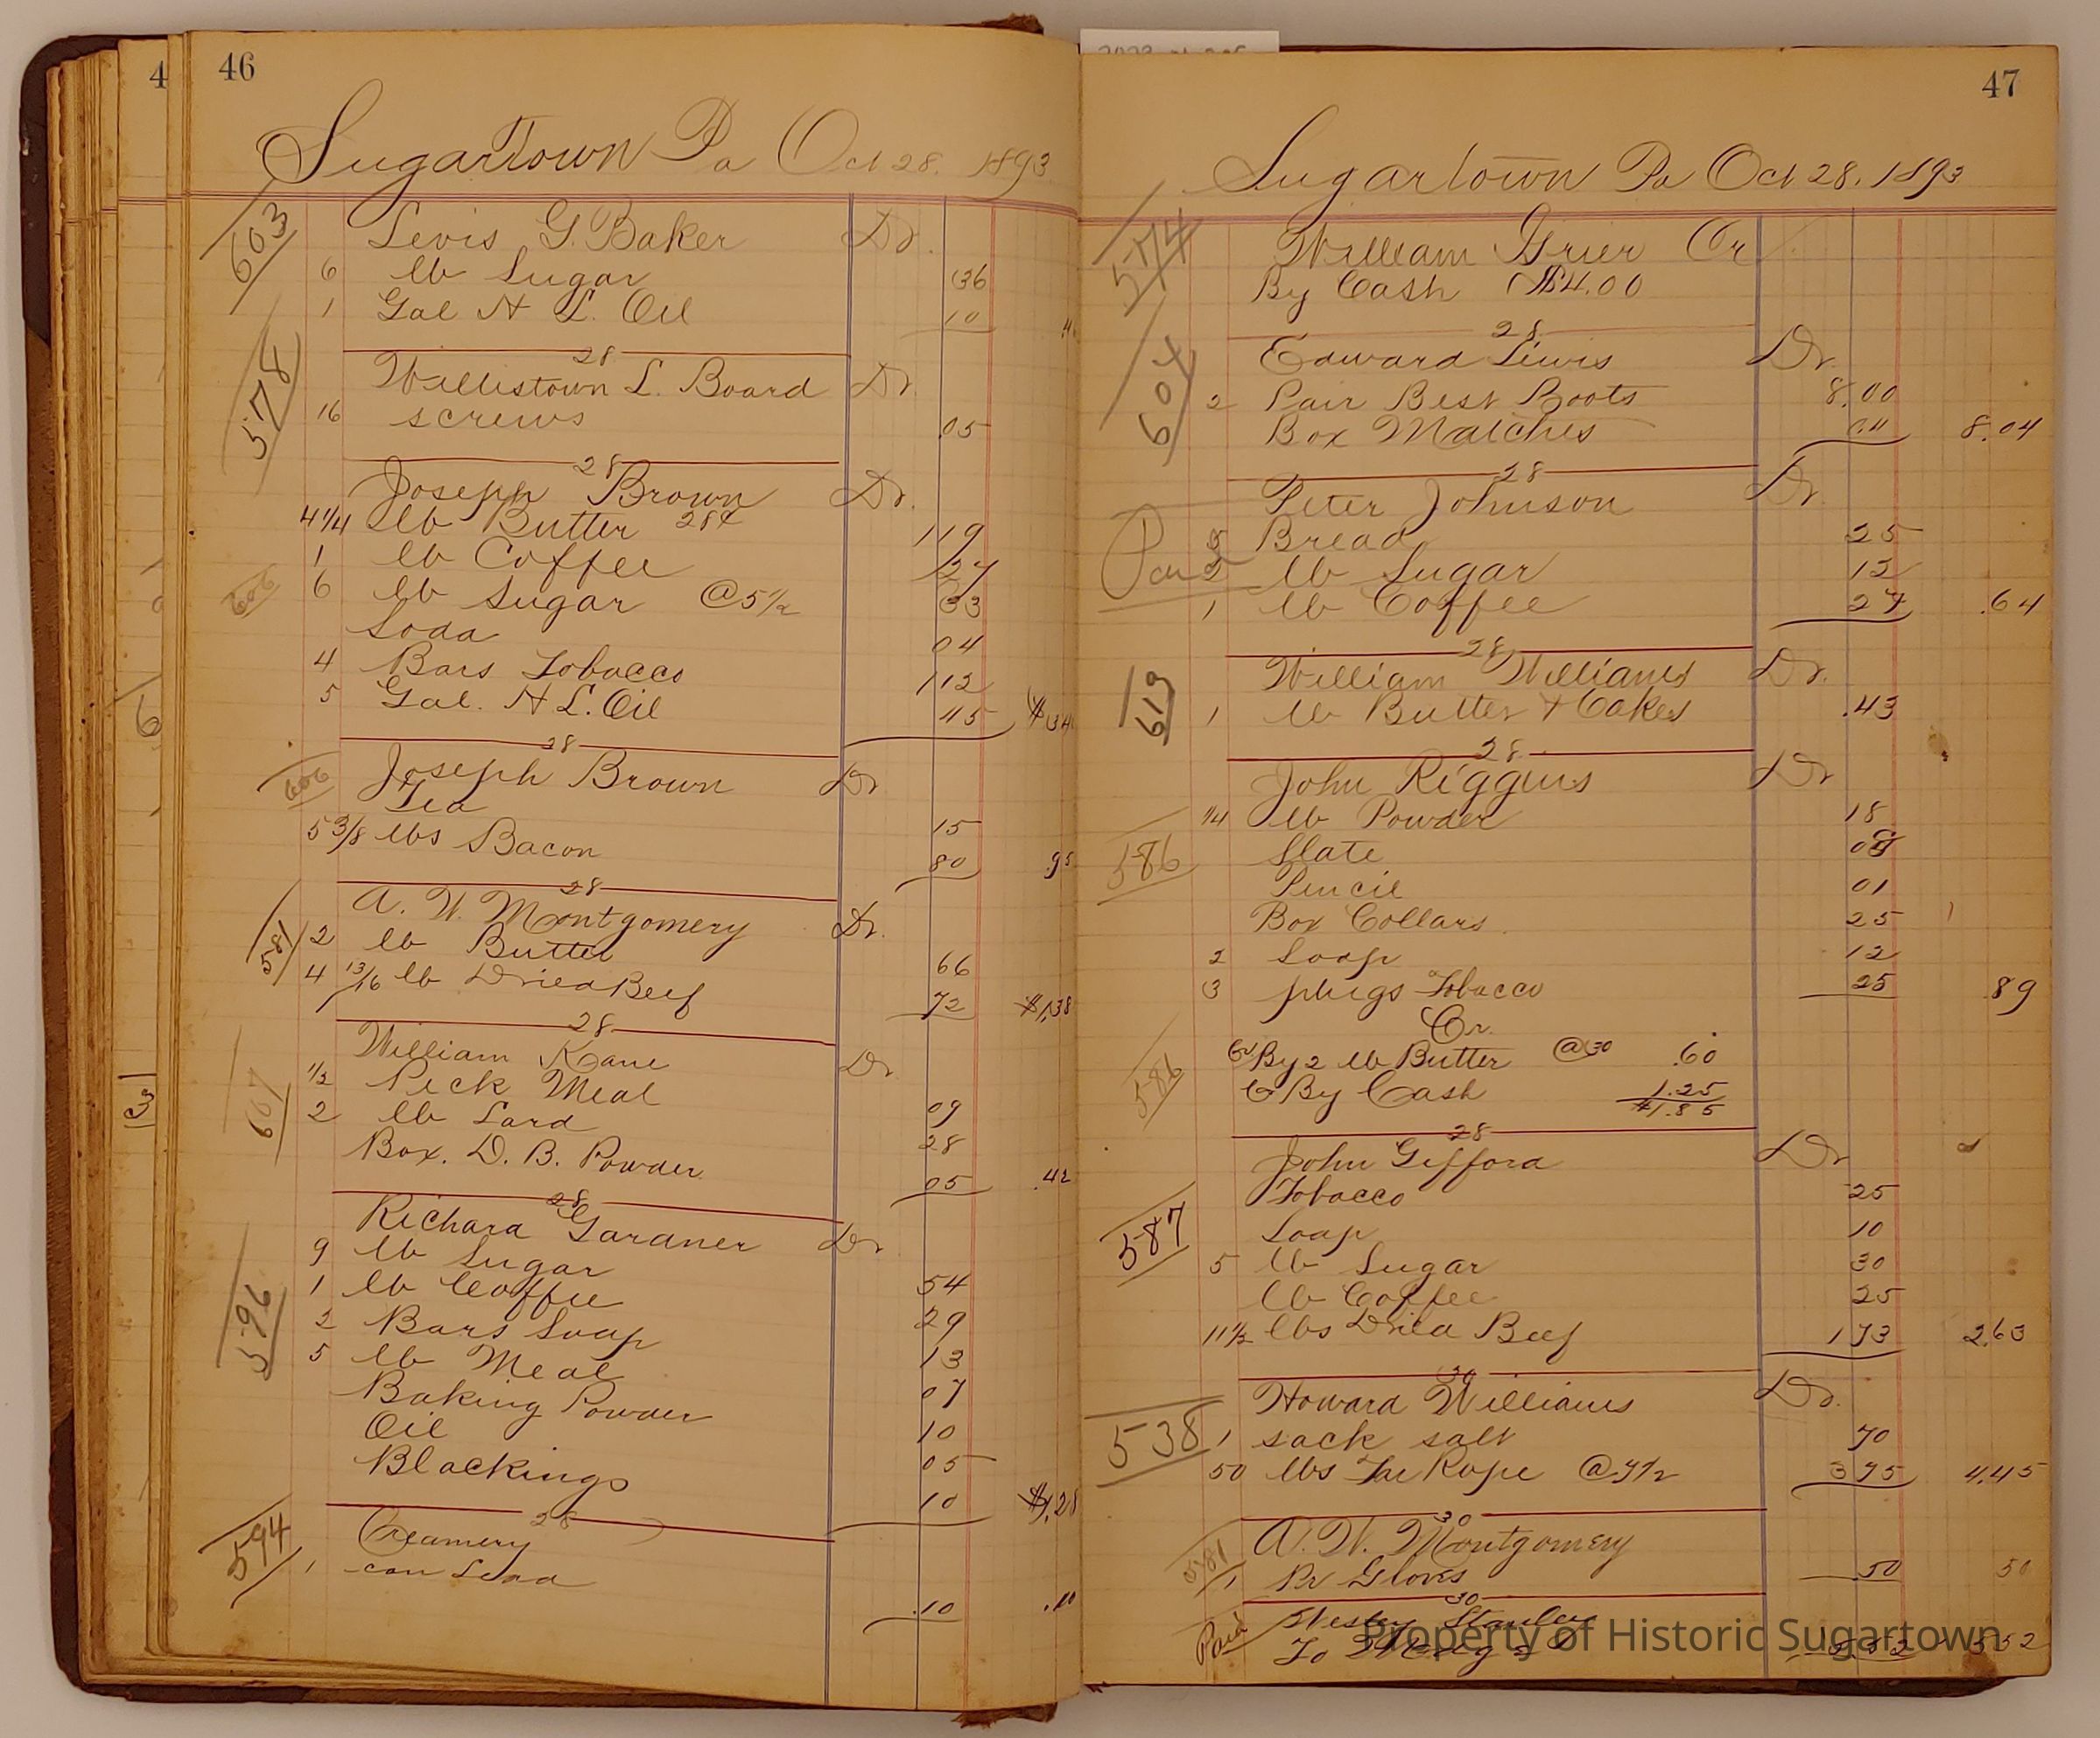 4
46
Sugartown Pa Oct 28. 1893
603
Levis G. Baker Dr.
6 lb Sugar 36
1 Gal H L. Oil 10
28
578
Willistown L. Board Dr.
16 screws .05
28
Joseph Brown Dr.
4 1/4 lb Butter 28¢ 119
1 lb Coffee 27
606
6 lb Sugar @5 1/2 33
Soda 04
4 Bars Tobacco 112
5 Gal. H L. Oil 45
28
606
Joseph Brown Dr
Tea 15
5 3/8 lbs Bacon 80 .95
28
581
A. W. Montgomery Dr.
2 lb Butter 66
4 13/16 lb Dried Beef 72 $1,38
28
607
William Kane Dr.
1/2 Peck Meal 09
2 lb Lard 28
Box. D. B. Powder 05 .42
28
596
Richard Gardner Dr
9 lb Sugar 54
1 lb Coffee 29
2 Bars Soap 13
5 lb Meal 07
Baking Powder 10
Oil 05
Blackings 10 $1,28
28
594
Creamery
1 can Lead .10 .10
6
3
47
Sugartown Pa Oct 28. 1893
574
William Grier Cr
By Cash $4.00
28
604
Edward Lewis Dr.
2 Pair Best Boots 8.00
Box Matches 04 8.04
28
Peter Johnson Dr.
Paid
5 Bread 25
2 lb Sugar 12
1 lb Coffee 27 .64
28
619
William Williams Dr.
1 lb Butter & Cakes .43
28
John Riggins Dr
1/4 lb Powder 18
586
Slate 08
Pencil 01
Box Collars 25
2 Soap 12
3 plugs Tobacco 25 .89
Cr.
586
Cr By 2 lb Butter @30 .60
Cr By Cash 1.25
$1.85
28
John Gifford Dr
Tobacco 25
587
Soap 10
5 lb Sugar 30
lb Coffee 25
11 1/2 lbs Dried Beef 1 73 2.63
30
Howard Williams Dr.
538
1 sack salt 70
50 lbs Rope @7 1/2 3 75 4.45
30
581
A. W. Montgomery
1 Pr Gloves .50 50
30
Paid
Wesley Stanley
To
Property of Historic Sugartown